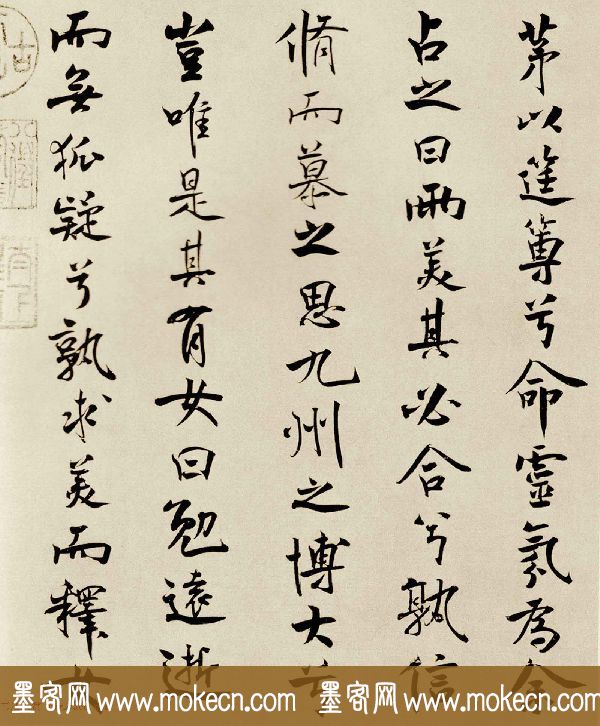 茅以筳篿兮命靈氛為余
占之曰兩美其必合兮孰信
脩而慕之思九州之博大兮
豈唯是其有女曰勉遠逝
而無狐疑兮孰求美而釋女
墨客网 www.mokecn.com 墨客网 www.mokecn.com